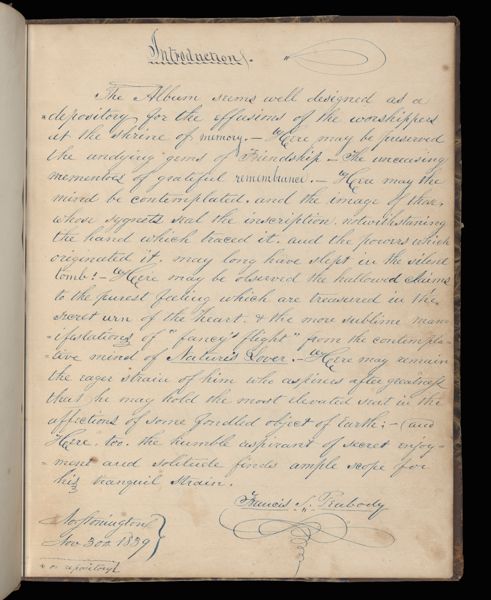 Introduction.
The Album seems well designed as a
*depository for the effusions of the worshippers
at the shrine of memory. — Here may be preserved
the undying gems of Friendship — The unceasing
mementoes of grateful remembrance. — Here may the
mind be contemplated. and the image of those,
whose sygnets seal the inscription. notwithstaning
the hand which traced it. and the powers which
originated it, may long have slept in the silent
tomb! — Here may be observed the hallowed claims
to the purest feeling which are treasured in the
secret urn of the heart. & the more sublime man-
-ifestations of "fancy's flight" from the contempla-
-tive mind of Nature's Lover. — Here may remain
the eager strain of him who aspires after greatness
that he may hold the most elevated seat in the
affections of some fondled object of Earth; — (and
Here. too. the humble aspirant of secret enjoy-
-ment and solitude finds ample scope for
his tranquil strain.
Francis S. Peabody
No. Stonington
Nov. 30th 1839
* or repository